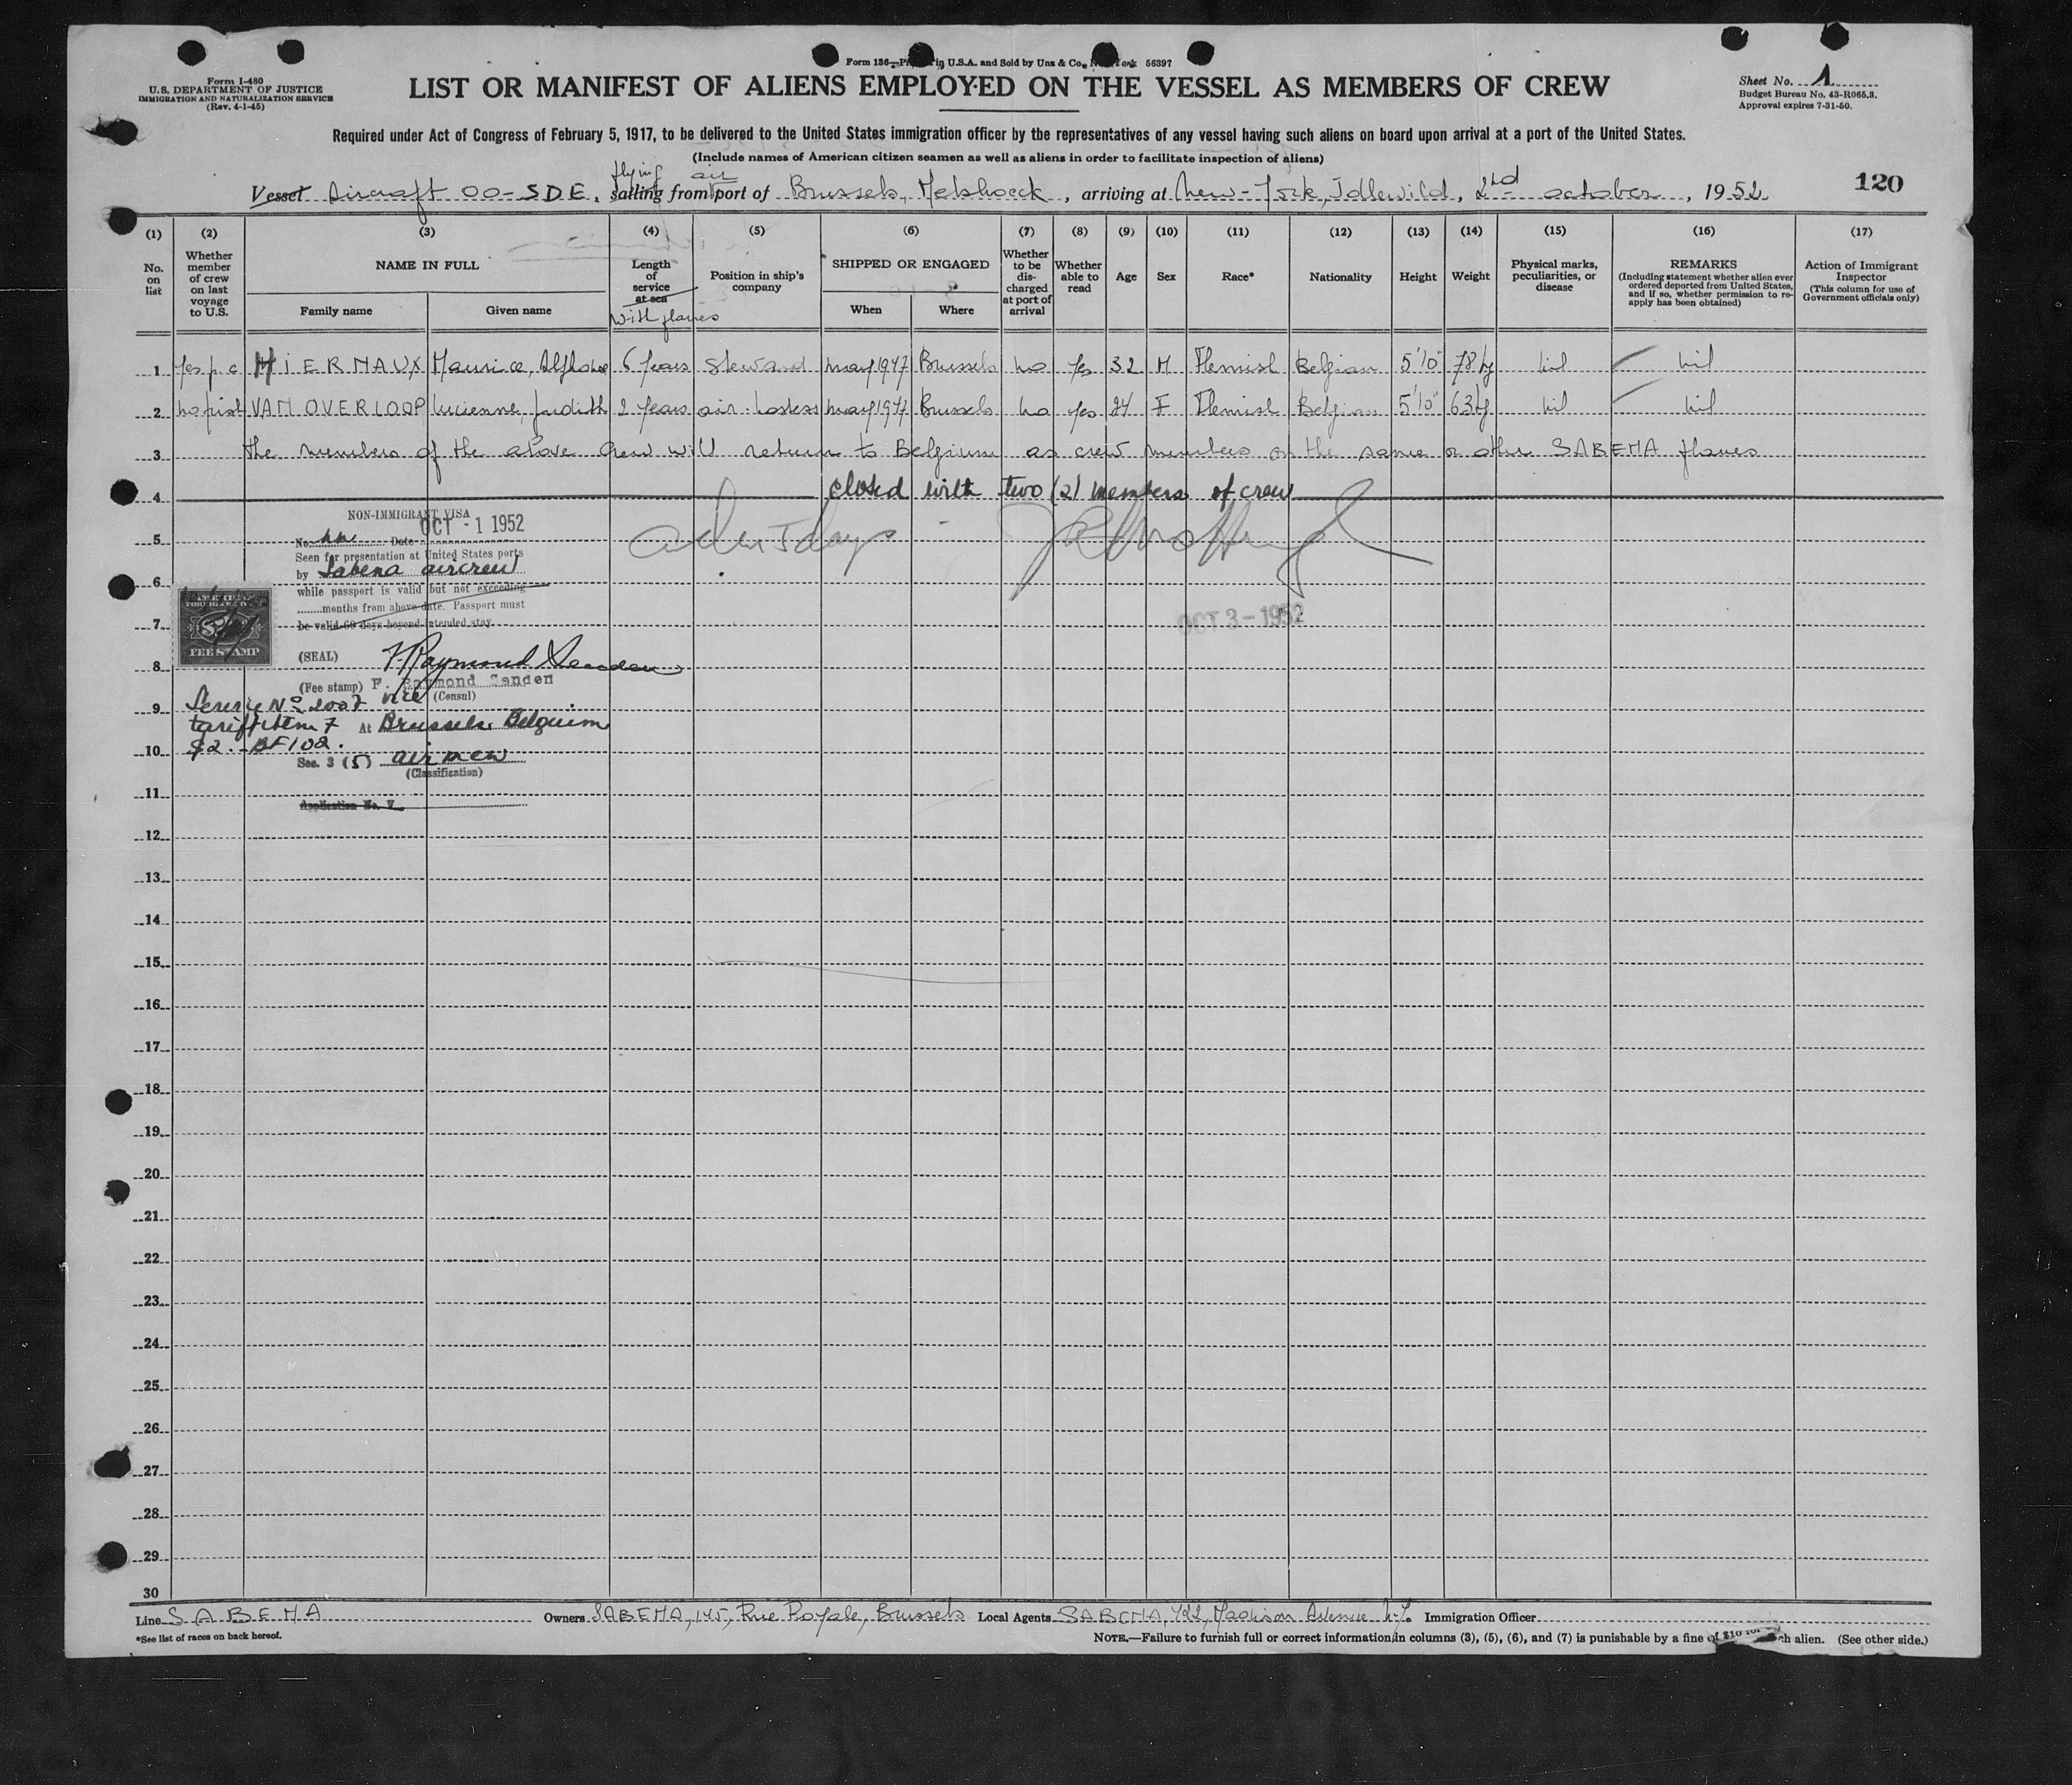 Form 136—Printed in U.S.A. and Sold by Unz & Co., New York 56397
Form I-480
U.S. DEPARTMENT OF JUSTICE
IMMIGRATION AND NATURALIZATION SERVICE
(Rev. 4-1-45)
LIST OR MANIFEST OF ALIENS EMPLOYED ON THE VESSEL AS MEMBERS OF CREW
Sheet No. 1
Budget Bureau No. 43-R065.3.
Approval expires 7-31-50.
Required under Act of Congress of February 5, 1917, to be delivered to the United States immigration officer by the representatives of any vessel having such aliens on board upon arrival at a port of the United States.
(Include names of American citizen seamen as well as aliens in order to facilitate inspection of aliens)
flying air
Vessel Aircraft OO-SDE, sailing from port of Brussels, Melsbroeck, arriving at New-York, Idlewild, 2nd october, 1952
120
(1) (2) (3) (4) (5) (6) (7) (8) (9) (10) (11) (12) (13) (14) (15) (16) (17)
No. on list
Whether member of crew on last voyage to U.S.
NAME IN FULL
Family name
Given name
Length of service at sea
with planes
Position in ship's company
SHIPPED OR ENGAGED
When
Where
Whether to be discharged at port of arrival
Whether able to read
Age
Sex
Race*
Nationality
Height
Weight
Physical marks, peculiarities, or disease
REMARKS
(Including statement whether alien ever ordered deported from United States, and if so, whether permission to reapply has been obtained)
Action of Immigrant Inspector
(This column for use of Government officials only)
1 Yes p.c. HIERNAUX Maurice, Alphonse 6 Years steward may 1947 Brussels no Yes 32 M Flemish Belgian 5'10" 78 kg nil nil
2 no first VAN OVERLOOP Lucienne, Judith 2 Years air-hostess may 1947 Brussels no yes 24 F Flemish Belgian 5'10" 63 kg nil nil
3 the members of the above crew will return to Belgium as crew members on the same or other SABENA planes
4 closed with two (2) members of crew
NON-IMMIGRANT VISA
No. Date OCT -1 1952
5
Seen for presentation at United States ports
by Sabena aircrew
6
while passport is valid but not exceeding
months from above date. Passport must
be valid 60 days beyond intended stay.
7
OCT 3-1952
FEE STAMP
(SEAL)
8
(Fee stamp) F. Raymond Senden
vice (Consul)
Service No 2007
9
tariff item 7 At Brussels Belguim
$2.-BF102.
10
Sec. 3 (5) airmen
(Classification)
11
Application No. V
12
13
14
15
16
17
18
19
20
21
22
23
24
25
26
27
28
29
30
Line SABENA Owners SABENA, 145, Rue Royale, Brussels Local Agents SABENA, 422, Madison Avenue N-Y. Immigration Officer
*See list of races on back hereof.
NOTE.—Failure to furnish full or correct information in columns (3), (5), (6), and (7) is punishable by a fine of $10 for each alien. (See other side.)